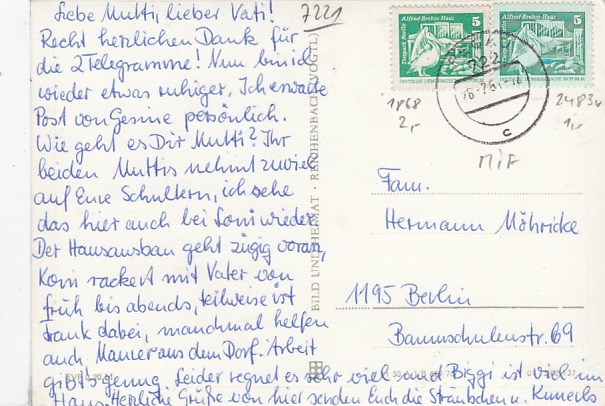 Liebe Mutti, lieber Vati!
Recht herzlichen Dank für
die 2 Telegramme! Nun bin ich
wieder etwas ruhiger, Ich erwarte
Post von Gesine persönlich.
Wie geht es Dir Mutti? Ihr
beiden Muttis nehmt zuviel
auf Eure Schultern, ich sehe
das hier auch bei Loni wieder.
Der Hausausbau geht zügig voran,
rackert mit Vater von
früh bis abends, teilweise ist
Frank dabei, manchmal helfen
auch Maurer aus dem Dorf. Arbeit
gibts genug. Leider regnet es sehr viel und Biggi ist viel im
Haus. Herzliche Grüße von hier senden Euch die Sträubchen u.
7221
Tierpark Berlin
Alfred-Brehm-Haus
5
DEUTSCHE DEMOKRATISCHE REPUBLIK
Alfred-Brehm-Haus
5
722
c
1868
2,-
2483v
1,-
MiF
BILD UND HEIMAT · REICHENBACH (VOGTL)
Fam.
Hermann Möhricke
1195 Berlin
Baumschulenstr. 69